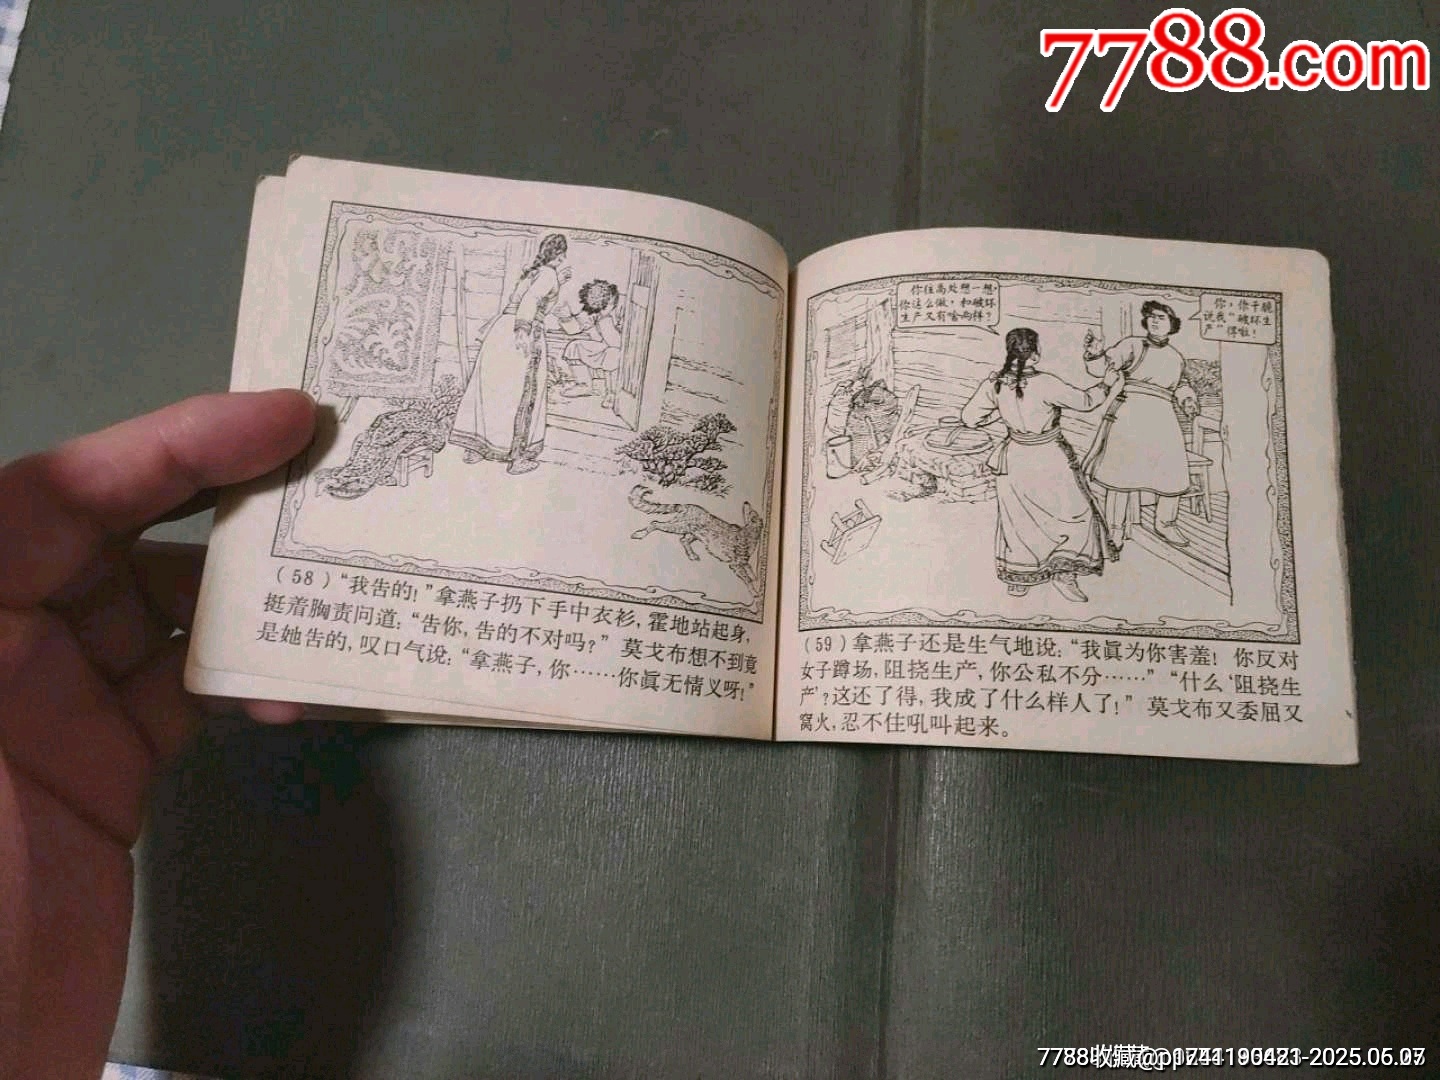 7788.com
(58)“我告的！”拿燕子扔下手中衣衫，霍地站起身，
挺着胸责问道：“告你，告的不对吗？”莫戈布想不到竟
是她告的，叹口气说：“拿燕子，你……你真无情义呀！”
你往高处想一想，
你这么做，和破坏
生产又有啥两样？
你，你干脆
说我“破坏生
产”得啦！
(59)拿燕子还是生气地说：“我真为你害羞！你反对
女子蹲场，阻挠生产，你公私不分……”“什么‘阻挠生
产’？这还了得，我成了什么样人了！”莫戈布又委屈又
窝火，忍不住吼叫起来。